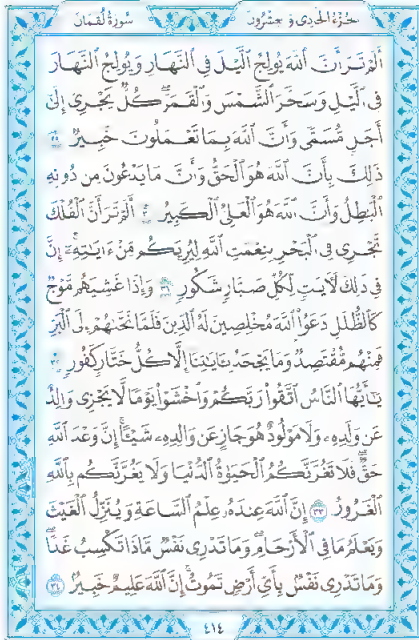 سورة لقمان
الجزء الحادي و عشرون
أَلَمْ تَرَ أَنَّ اللَّهَ يُولِجُ الَّيْلَ فِي النَّهَارِ وَيُولِجُ النَّهَارَ
فِي الَّيْلِ وَسَخَّرَ الشَّمْسَ وَالْقَمَرَ كُلٌّ يَجْرِي إِلَىٰ
أَجَلٍ مُّسَمًّى وَأَنَّ اللَّهَ بِمَا تَعْمَلُونَ خَبِيرٌ ٢٩
ذَٰلِكَ بِأَنَّ اللَّهَ هُوَ الْحَقُّ وَأَنَّ مَا يَدْعُونَ مِن دُونِهِ
الْبَٰطِلُ وَأَنَّ اللَّهَ هُوَ الْعَلِيُّ الْكَبِيرُ ٣٠ أَلَمْ تَرَ أَنَّ الْفُلْكَ
تَجْرِي فِي الْبَحْرِ بِنِعْمَتِ اللَّهِ لِيُرِيَكُم مِّنْ ءَايَٰتِهِ إِنَّ
فِي ذَٰلِكَ لَءَايَٰتٍ لِّكُلِّ صَبَّارٍ شَكُورٍ ٣١ وَإِذَا غَشِيَهُم مَّوْجٌ
كَالظُّلَلِ دَعَوُا اللَّهَ مُخْلِصِينَ لَهُ الدِّينَ فَلَمَّا نَجَّىٰهُمْ إِلَى الْبَرِّ
فَمِنْهُم مُّقْتَصِدٌ وَمَا يَجْحَدُ بِـَٔايَٰتِنَا إِلَّا كُلُّ خَتَّارٍ كَفُورٍ ٣٢
يَٰٓأَيُّهَا النَّاسُ اتَّقُوا رَبَّكُمْ وَاخْشَوْا يَوْمًا لَّا يَجْزِي وَالِدٌ
عَن وَلَدِهِ وَلَا مَوْلُودٌ هُوَ جَازٍ عَن وَالِدِهِ شَيْـًٔا إِنَّ وَعْدَ اللَّهِ
حَقٌّ فَلَا تَغُرَّنَّكُمُ الْحَيَوٰةُ الدُّنْيَا وَلَا يَغُرَّنَّكُم بِاللَّهِ
الْغَرُورُ ٣٣ إِنَّ اللَّهَ عِندَهُ عِلْمُ السَّاعَةِ وَيُنَزِّلُ الْغَيْثَ
وَيَعْلَمُ مَا فِي الْأَرْحَامِ وَمَا تَدْرِي نَفْسٌ مَّاذَا تَكْسِبُ غَدًا
وَمَا تَدْرِي نَفْسٌ بِأَيِّ أَرْضٍ تَمُوتُ إِنَّ اللَّهَ عَلِيمٌ خَبِيرٌ ٣٤
٤١٤